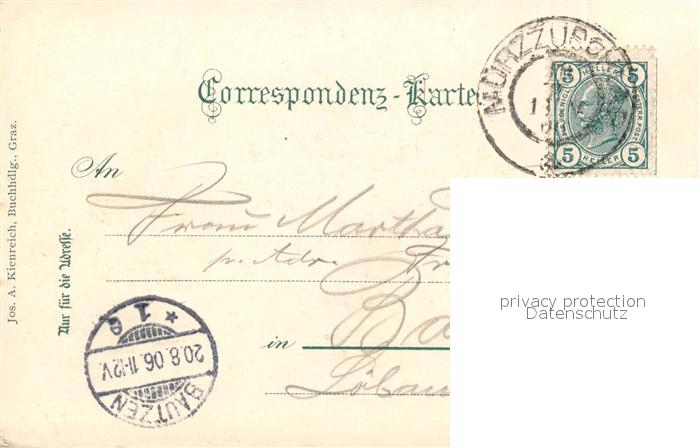 Correspondenz-Karte
MÜRZZUSCH
5 HELLER 5
5 HELLER 5
An
Frau Martha
p. Adr. Fr
in Ba
Löbau
Nur für die Adresse.
Jos. A. Kienreich, Buchhdlg., Graz.
BAUTZEN
20.8.06.11-12V.
* 1 e
privacy protection
Datenschutz